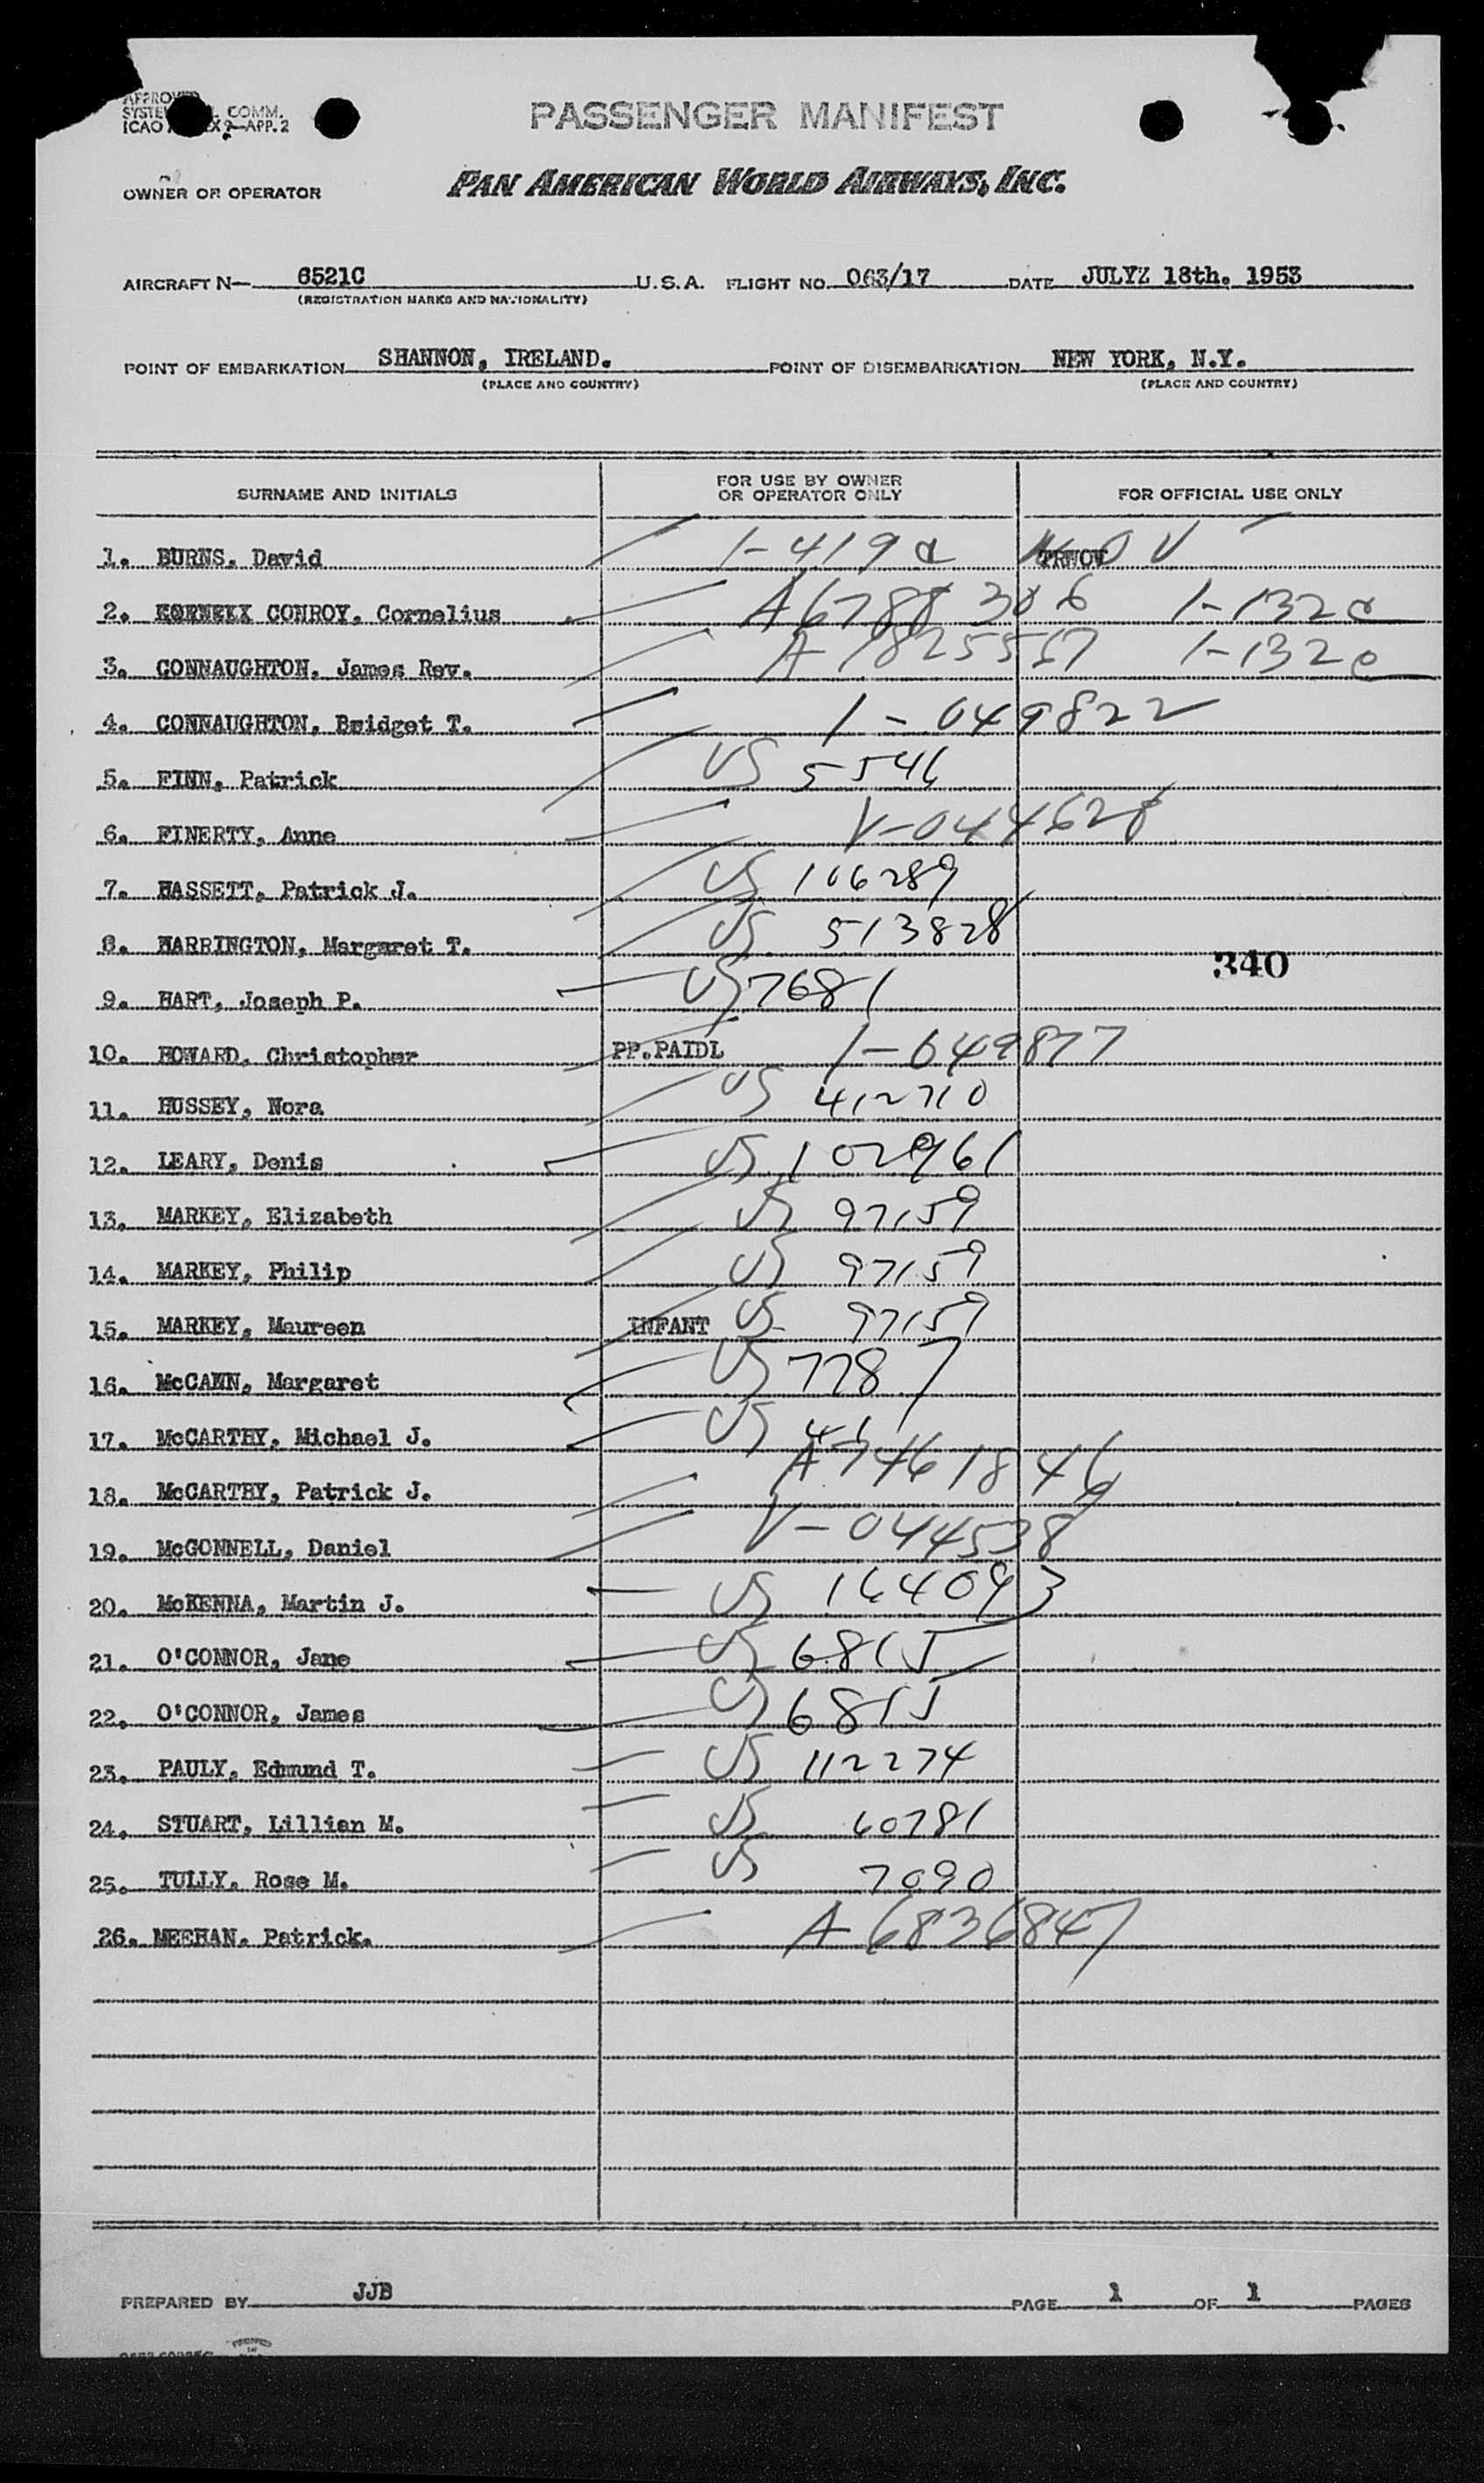 APPROVED
COMM.
ICAO 9—APP. 2
PASSENGER MANIFEST
OWNER OR OPERATOR
PAN AMERICAN WORLD AIRWAYS, INC.
AIRCRAFT N— 6521C U.S.A. FLIGHT NO. 063/17 DATE JULYZ 18th. 1953
(REGISTRATION MARKS AND NATIONALITY)
POINT OF EMBARKATION SHANNON, IRELAND. POINT OF DISEMBARKATION NEW YORK, N.Y.
(PLACE AND COUNTRY) (PLACE AND COUNTRY)
SURNAME AND INITIALS FOR USE BY OWNER OR OPERATOR ONLY FOR OFFICIAL USE ONLY
1. BURNS, David 1-419a
2. CONROY, Cornelius A6788306 1-132a
3. CONNAUGHTON, James Rev. A 7825557 1-132c
4. CONNAUGHTON, Bridget T. 1-049822
5. FINN, Patrick US 5546
6. FINERTY, Anne V-044628
7. HASSETT, Patrick J. US 106289
8. HARRINGTON, Margaret T. US 513828
340
9. HART, Joseph P. US 7681
10. HOWARD, Christopher PP.PAIDL 1-049877
11. HUSSEY, Nora US 412710
12. LEARY, Denis US 102961
13. MARKEY, Elizabeth US 97159
14. MARKEY, Philip US 97159
15. MARKEY, Maureen INFANT US 97159
16. McCANN, Margaret US 7787
17. McCARTHY, Michael J. US
18. McCARTHY, Patrick J. A7461846
19. McGONNELL, Daniel V-044538
20. McKENNA, Martin J. US 164093
21. O'CONNOR, Jane US 6815
22. O'CONNOR, James US 6815
23. PAULY, Edmund T. US 112274
24. STUART, Lillian M. US 60781
25. TULLY, Rose M. US 7090
26. MEEHAN, Patrick. A 6836847
PREPARED BY JJB PAGE 1 OF 1 PAGES